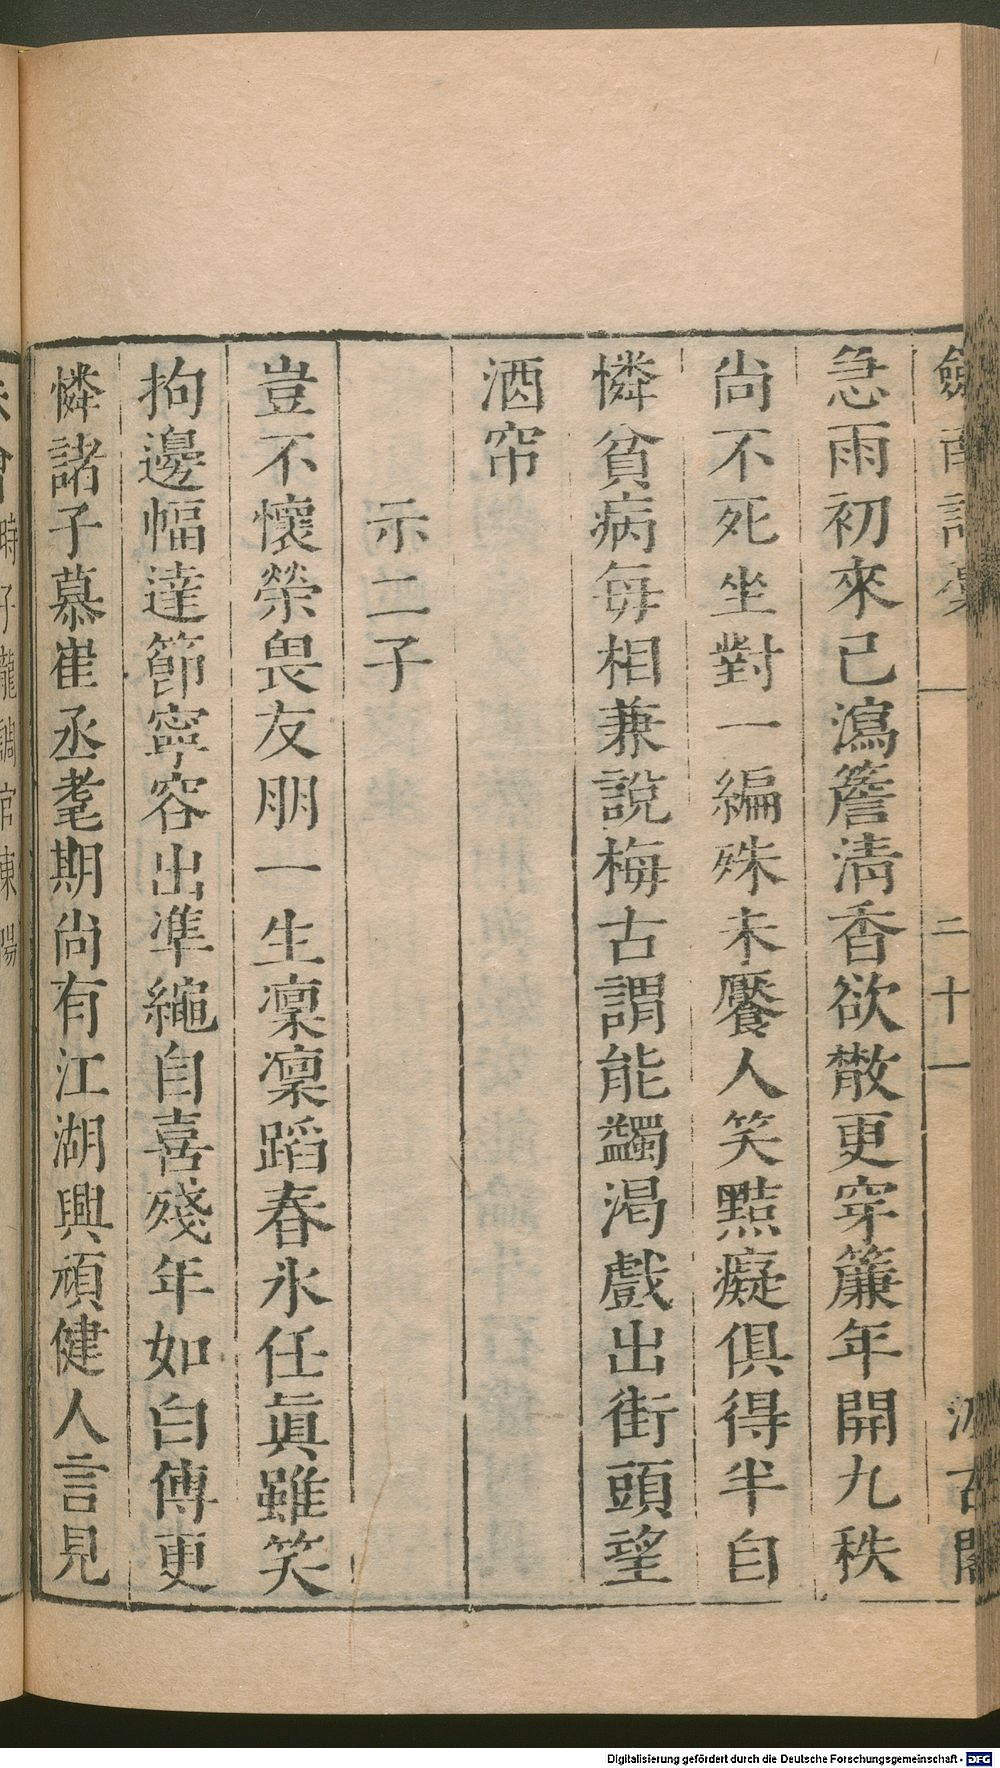 劒南詩藁 二十一 汲古閣
急雨初來已瀉簷清香欲散更穿簾年開九秩
尚不死坐對一編殊未饜人笑黠癡俱得半自
憐貧病每相兼說梅古謂能蠲渴戲出街頭望
酒帘
示二子
豈不懷榮畏友朋一生凜凜蹈春氷任眞雖笑
拘邊幅達節寧容出準繩自喜殘年如白傅更
憐諸子慕崔丞耄期尚有江湖興頑健人言見
時子龍調官東陽
Digitalisierung gefördert durch die Deutsche Forschungsgemeinschaft - DFG